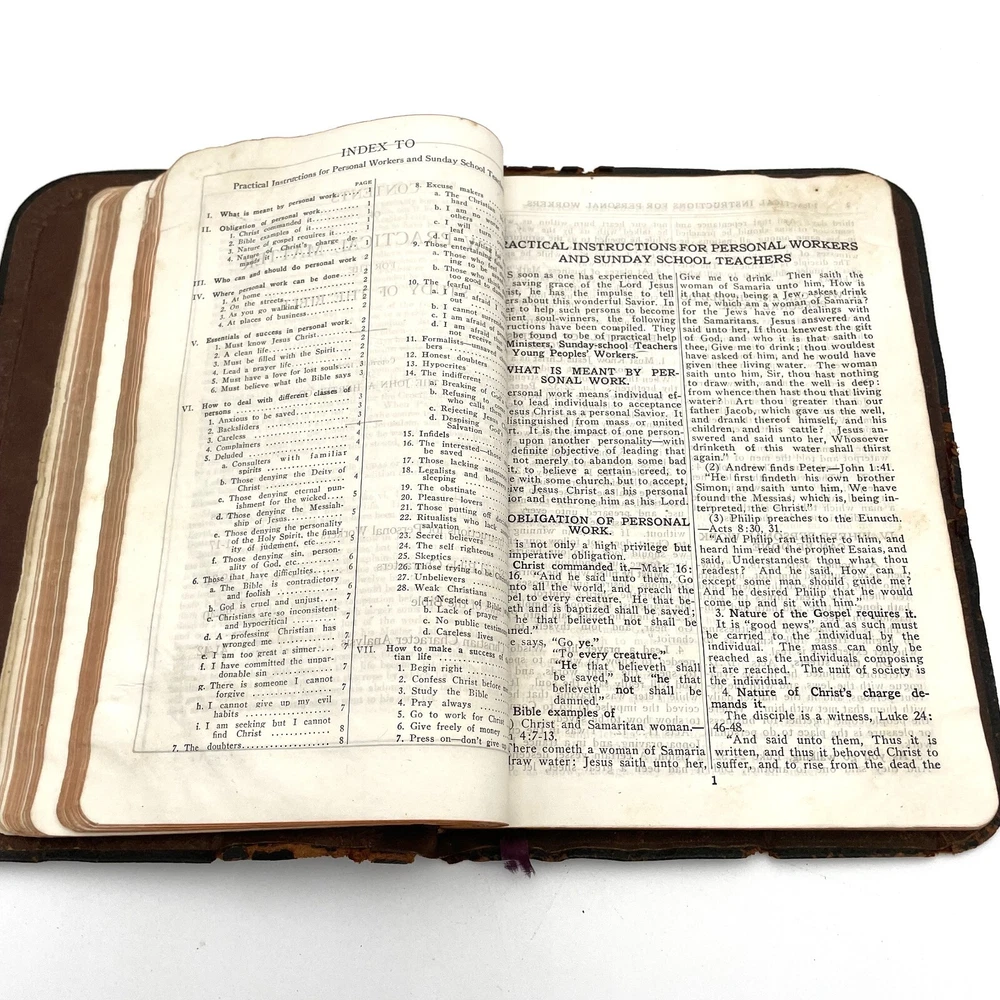 INDEX TO
Practical Instructions for Personal Workers and Sunday School
PAGE
I. What is meant by personal work..... 1
II. Obligation of personal work........ 1
1. Christ commanded it............ 1
2. Bible examples of it............ 1
3. Nature of gospel requires it.... 1
4. Nature of Christ's charge de-
mands it ....................... 1
III. Who can and should do personal work 2
IV. Where personal work can be done.... 2
1. At home ....................... 2
2. On the streets................. 2
3. As you go walking.............. 2
4. At places of business.......... 2
V. Essentials of success in personal work. 2
1. Must know Jesus Christ......... 2
2. A clean life................... 2
3. Must be filled with the Spirit.... 2
4. Lead a prayer life............. 2
5. Must have a love for lost souls... 2
6. Must believe what the Bible says 3
VI. How to deal with different classes of
persons ....................... 3
1. Anxious to be saved............ 3
2. Backsliders ................... 3
3. Careless ...................... 4
4. Complainers ................... 4
5. Deluded ....................... 4
a. Consulters with familiar
spirits .................... 4
b. Those denying the Deity of
Christ ..................... 4
c. Those denying eternal pun-
ishment for the wicked..... 5
d. Those denying the Messiah-
ship of Jesus.............. 5
e. Those denying the personality
of the Holy Spirit, the final-
ity of judgment, etc....... 5
f. Those denying sin, person-
ality of God, etc.......... 6
6. Those that have difficulties..... 6
a. The Bible is contradictory
and foolish ................ 6
b. God is cruel and unjust.... 7
c. Christians are so inconsistent
and hypocritical ........... 7
d. A professing Christian has
wronged me ................. 7
e. I am too great a sinner.... 7
f. I have committed the unpar-
donable sin ................ 7
g. There is someone I cannot
forgive .................... 7
h. I cannot give up my evil
habits ..................... 7
i. I am seeking but I cannot
find Christ ................ 8
7. The doubters.................... 8
8. Excuse makers
a. The Christian
hard
b. I am no
others
c. I will turn
leaf
d. I am
9. Those entertaining
a. Those who
ing to be
b. Those who
too good to
10. The fearful
a. I am afraid
out
b. I cannot
c. I am afraid of
d. I am afraid
not receive
11. Formalists—
bers
12. Honest doubters
13. Hypocrites
14. The indifferent
a. Breaking of God's
b. Refusing to
who calls
c. Rejecting Jesus
d. Despising God's
Salvation
15. Infidels
16. The interested—
be saved
17. Those lacking assurance
18. Legalists and
sleeping
19. The obstinate
20. Pleasure lovers
21. Those putting off
22. Ritualists who lack
salvation
23. Secret believers
24. The self righteous
25. Skeptics
26. Those trying to be
27. Unbelievers
28. Weak Christians
a. Neglect of Bible
b. Lack of prayer
c. No public
d. Careless lives
VII. How to make a success of
tian life
1. Begin right
2. Confess Christ before
3. Study the Bible
4. Pray always
5. Go to work for Christ
6. Give freely of money
7. Press on—don't give
RACTICAL INSTRUCTIONS FOR PERSONAL WORKERS
AND SUNDAY SCHOOL TEACHERS
S soon as one has experienced the
saving grace of the Lord Jesus
hrist, he has the impulse to tell
ers about this wonderful Savior. In
er to help such persons to become
cient soul-winners, the following
ructions have been compiled. They
be found to be of practical help
Ministers, Sunday-school Teachers
Young Peoples' Workers.
WHAT IS MEANT BY PER-
SONAL WORK.
ersonal work means individual ef-
to lead individuals to acceptance
esus Christ as a personal Savior. It
distinguished from mass or united
It is the impact of one person-
upon another personality—with
definite objective of leading that
not merely to abandon some bad
it, to believe a certain creed, to
e with some church, but to accept,
eive Jesus Christ as his personal
ior and enthrone him as his Lord.
OBLIGATION OF PERSONAL
WORK.
is not only a high privilege but
imperative obligation.
Christ commanded it.—Mark 16:
16. "And he said unto them, Go
into all the world, and preach the
pel to every creature. He that be-
eth and is baptized shall be saved;
he that believeth not shall be
ned."
e says, "Go ye."
"To every creature."
"He that believeth shall
be saved," but "he that
believeth not shall be
damned."
Bible examples of
) Christ and Samaritan woman.—
n 4:7-13.
here cometh a woman of Samaria
draw water: Jesus saith unto her,
Give me to drink. Then saith the
woman of Samaria unto him, How is
it that thou, being a Jew, askest drink
of me, which am a woman of Samaria?
for the Jews have no dealings with
the Samaritans. Jesus answered and
said unto her, If thou knewest the gift
of God, and who it is that saith to
thee, Give me to drink; thou wouldest
have asked of him, and he would have
given thee living water. The woman
saith unto him, Sir, thou hast nothing
to draw with, and the well is deep:
from whence then hast thou that living
water? Art thou greater than our
father Jacob, which gave us the well,
and drank thereof himself, and his
children, and his cattle? Jesus an-
swered and said unto her, Whosoever
drinketh of this water shall thirst
again."
(2) Andrew finds Peter.—John 1:41.
"He first findeth his own brother
Simon, and saith unto him, We have
found the Messias, which is, being in-
terpreted, the Christ."
(3) Philip preaches to the Eunuch.
—Acts 8:30, 31.
"And Philip ran thither to him, and
heard him read the prophet Esaias, and
said, Understandest thou what thou
readest? And he said, How can I,
except some man should guide me?
And he desired Philip that he would
come up and sit with him."
3. Nature of the Gospel requires it.
It is "good news" and as such must
be carried to the individual by the
individual. The mass can only be
reached as the individuals composing
it are reached. The unit of society is
the individual.
4. Nature of Christ's charge de-
mands it.
The disciple is a witness, Luke 24:
46-48.
"And said unto them, Thus it is
written, and thus it behoved Christ to
suffer, and to rise from the dead the
1